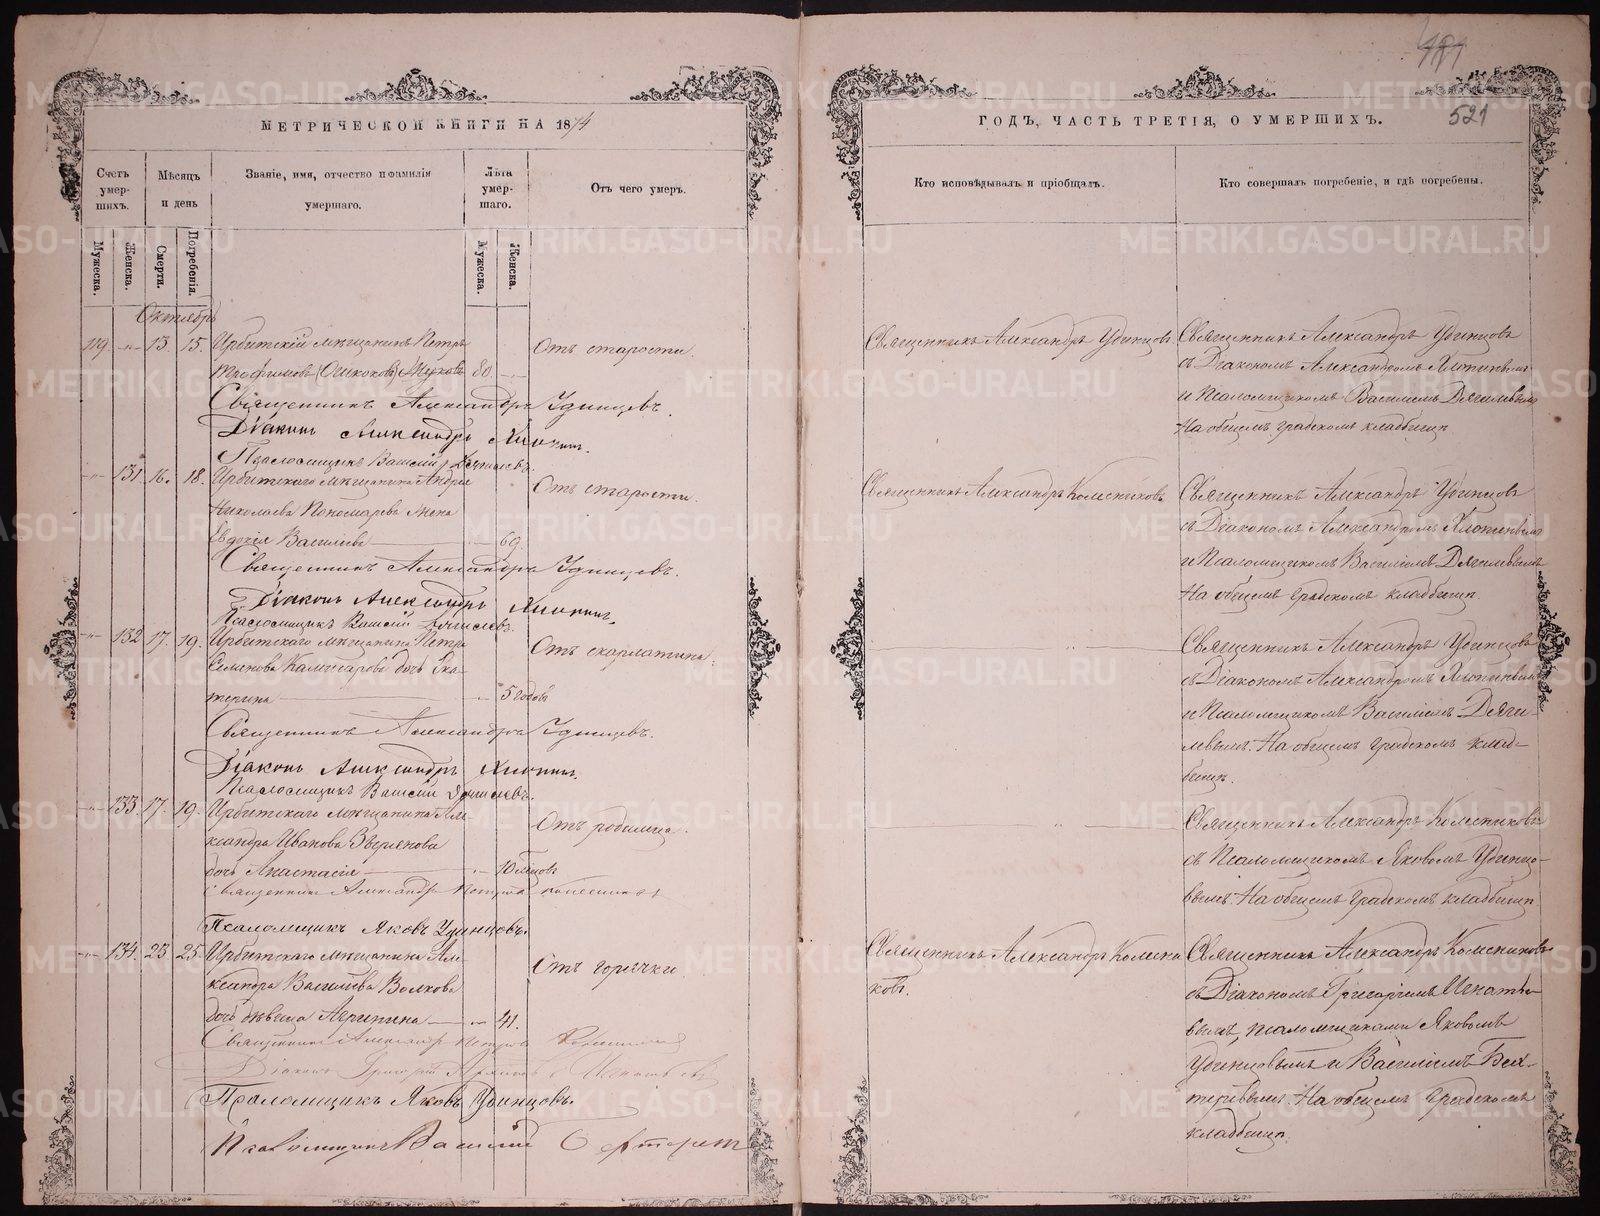 481
521
МЕТРИЧЕСКОЙ КНИГИ НА 1874
ГОДЪ, ЧАСТЬ ТРЕТІЯ, О УМЕРШИХЪ.
Счетъ умер- шихъ.
Мѣсяцъ и день
Званіе, имя, отчество и фамилія умершаго.
Лѣта умер- шаго.
Отъ чего умеръ.
Кто исповѣдывалъ и пріобщалъ.
Кто совершалъ погребеніе, и гдѣ погребены.
Мужеска.
Женска.
Смерти.
Погребенія.
Мужеска.
Женска.
Октябрь
119. -"- 13. 15. Ирбитскій мѣщанинъ Петръ
Трофимовъ (Ошкоковъ) Жуковъ 80. —
Отъ старости.
Священникъ Александръ Удинцовъ.
Священникъ Александръ Удинцовъ
съ Діакономъ Александромъ Хлопинымъ
и Псаломщикомъ Василіемъ Дягилевымъ
На общемъ градскомъ кладбищѣ.
Священникъ Александръ Удинцевъ.
Діаконъ Александръ Хлопинъ.
Псаломщикъ Василій Дягилевъ.
-"- 131. 16. 18. Ирбитскаго мѣщанина Андрея
Николаева Пономарева жена
Евдокія Васильева — -"- 69.
Отъ старости.
Священникъ Александръ Колесниковъ
Священникъ Александръ Удинцовъ
съ Діакономъ Александромъ Хлопинымъ
и Псаломщикомъ Василіемъ Дягилевымъ
На общемъ градскомъ кладбищѣ.
Священникъ Александръ Удинцевъ.
Діаконъ Александръ Хлопинъ.
Псаломщикъ Василій Дягилевъ.
-"- 132 17. 19. Ирбитскаго мѣщанина Петра
Семенова дочь Ека-
терина — -"- 5 годовъ
Отъ скарлатины.
-"-
Священникъ Александръ Удинцовъ
съ Діакономъ Александромъ Хлопинымъ
и Псаломщикомъ Василіемъ Дяги-
левымъ. На общемъ градскомъ клад-
бищѣ.
Священникъ Александръ Удинцевъ.
Діаконъ Александръ Хлопинъ.
Псаломщикъ Василій Дягилевъ.
-"- 133. 17. 19. Ирбитскаго мѣщанина Але-
ксандра Иванова Зырянова
дочь Анастасія — -"- 10
Отъ родимца.
-"-
Священникъ Александръ Колесниковъ
съ Псаломщикомъ Яковомъ Удинцо-
вымъ. На общемъ градскомъ кладбищѣ.
Священникъ Александръ Петровъ Колесниковъ
Псаломщикъ Яковъ Удинцовъ.
-"- 134. 23 25 Ирбитскаго мѣщанина Але-
ксандра Васильева Волкова
дочь дѣвица Агрипина — -"- 41.
Отъ горячки
Священникъ Александръ Колесни-
ковъ.
Священникъ Александръ Колесниковъ
съ Діакономъ Григоріемъ Игнатье-
вымъ, псаломщиками Яковомъ
Удинцовымъ и Василіемъ
На общемъ градскомъ
кладбищѣ.
Священникъ Александръ Петровъ Колесниковъ
Діаконъ Григорій
Псаломщикъ Яковъ Удинцовъ.
Псаломщикъ Василій
METRIKI.GASO-URAL.RU